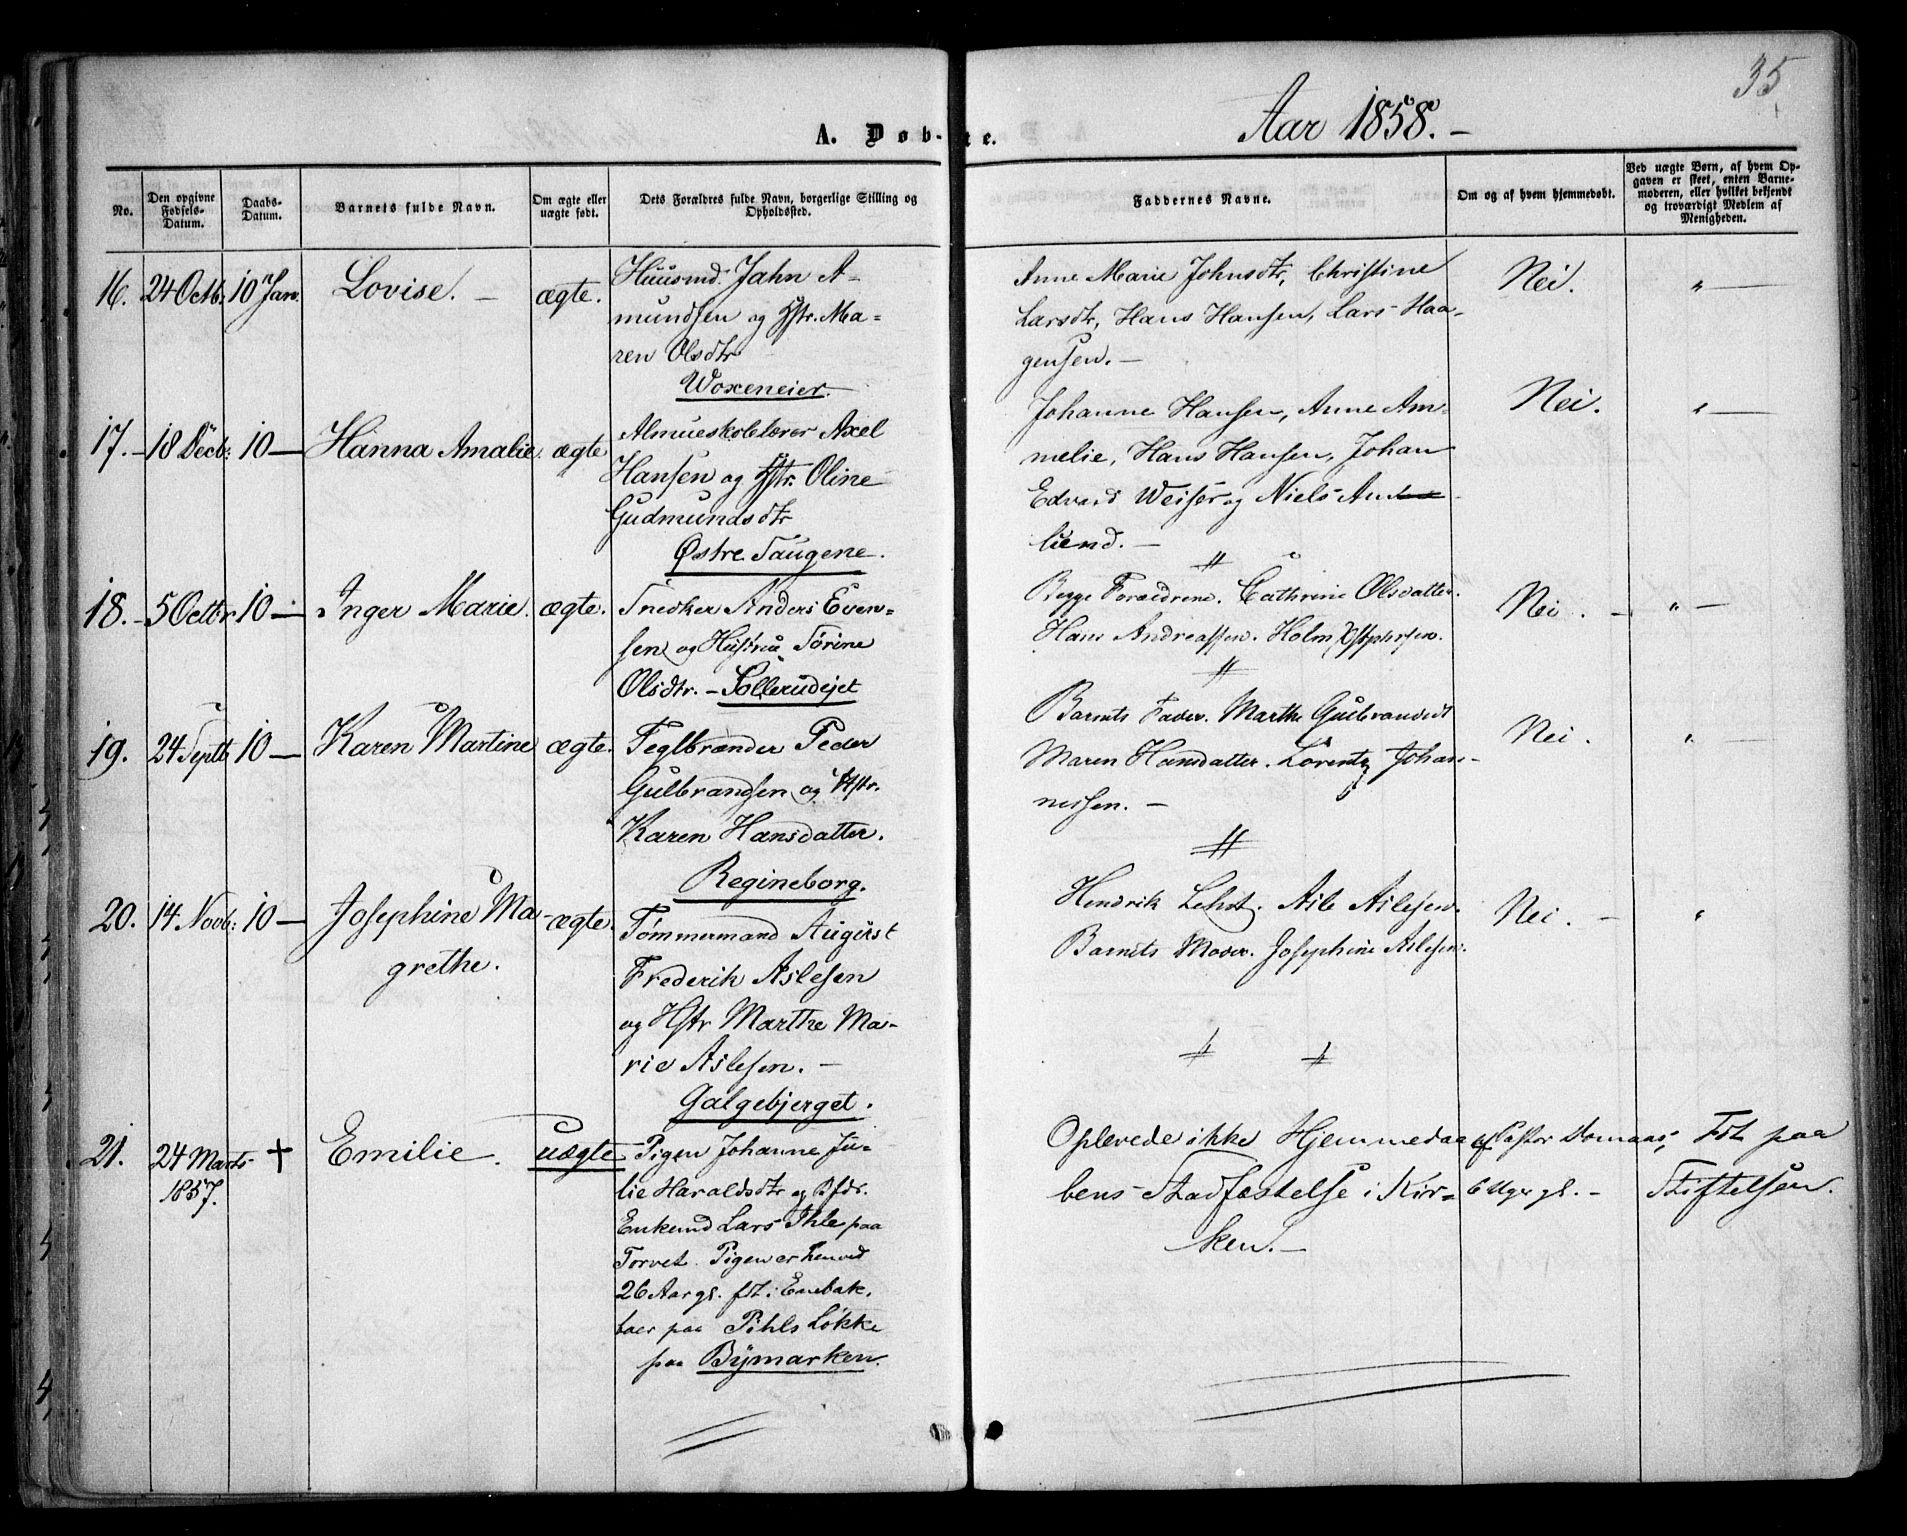 35
A. Døb-te.
Aar 1858.-
No.
Den opgivne Fødsels-Datum.
Daabs-Datum.
Barnets fulde Navn.
Om ægte eller uægte født.
Dets Forældres fulde Navn, borgerlige Stilling og Opholdssted.
Faddernes Navne.
Om og af hvem hjemmedøbt.
Ved uægte Børn, af hvem Opgaven er skeet, enten Barnemoderen, eller hvilket bekjendt og troværdigt Medlem af Menigheden.
16. 24 Octb: 10 Jan. Lovise. - ægte.
Huusmd. Jahn A-
mundsen og Hstr. Ma-
ren Olsdtr
Woxeneier.
Anne Marie Johnsdtr, Christine
Larsdtr, Hans Hansen, Lars Haa-
gensen. -
Nei. "
17. - 18 Decb: 10 - Hanna Amalie. ægte
Almueskolelærer Axel
Hansen og Hstr. Oline
Gudmundsdtr
Østre Taugene.
Johanne Hansen, Anne Am-
melie, Hans Hansen, Johan
Edvard Weiser og Niels
lund. -
Nei. "
18. - 5 Octbr 10 - Inger Marie. ægte.
Snedker Anders Even-
sen og Hustru Sørine
Olsdtr. - Sollerudejet
Begge Forældrene. Cathrine Olsdatter.
Hans Andreassen. Holm
Nei. - " -
19. 24 Septb 10 - Karen Martine ægte.
Teglbrænder Peder
Gulbrandsen og Hstr.
Karen Hansdatter.
Regineborg.
Barnets Fader. Marthe Gulbrandsdt
Maren Hansdatter. Lorentz Johan-
nessen. -
Nei. "
20. 14 Novb: 10 - Josephine Ma-
grethe. ægte.
Tømmermand August
Frederik Aslesen
og Hstr Marthe Ma-
rie Aslesen. -
Galgebjerget.
Hendrik Asle Aslesen.
Barnets Moder. Josephine Aslesen.
Nei. - "
21. 24 Marts
1857. + Emilie. uægte
Pigen Johanne Ju-
lie Haraldsdtr og Bfdr.
Enkemd Lars Ihle paa
Torvet. Pigen er henved
26 Aar gl. fdt i Enebak,
boer paa Pihls Løkke
paa Bymarken.
Oplevede ikke Hjemmedaa-
bens Stadfæstelse i Kir-
ken. -
af Pastor
6 Uger gl. -
Fdt paa
Stiftelsen.